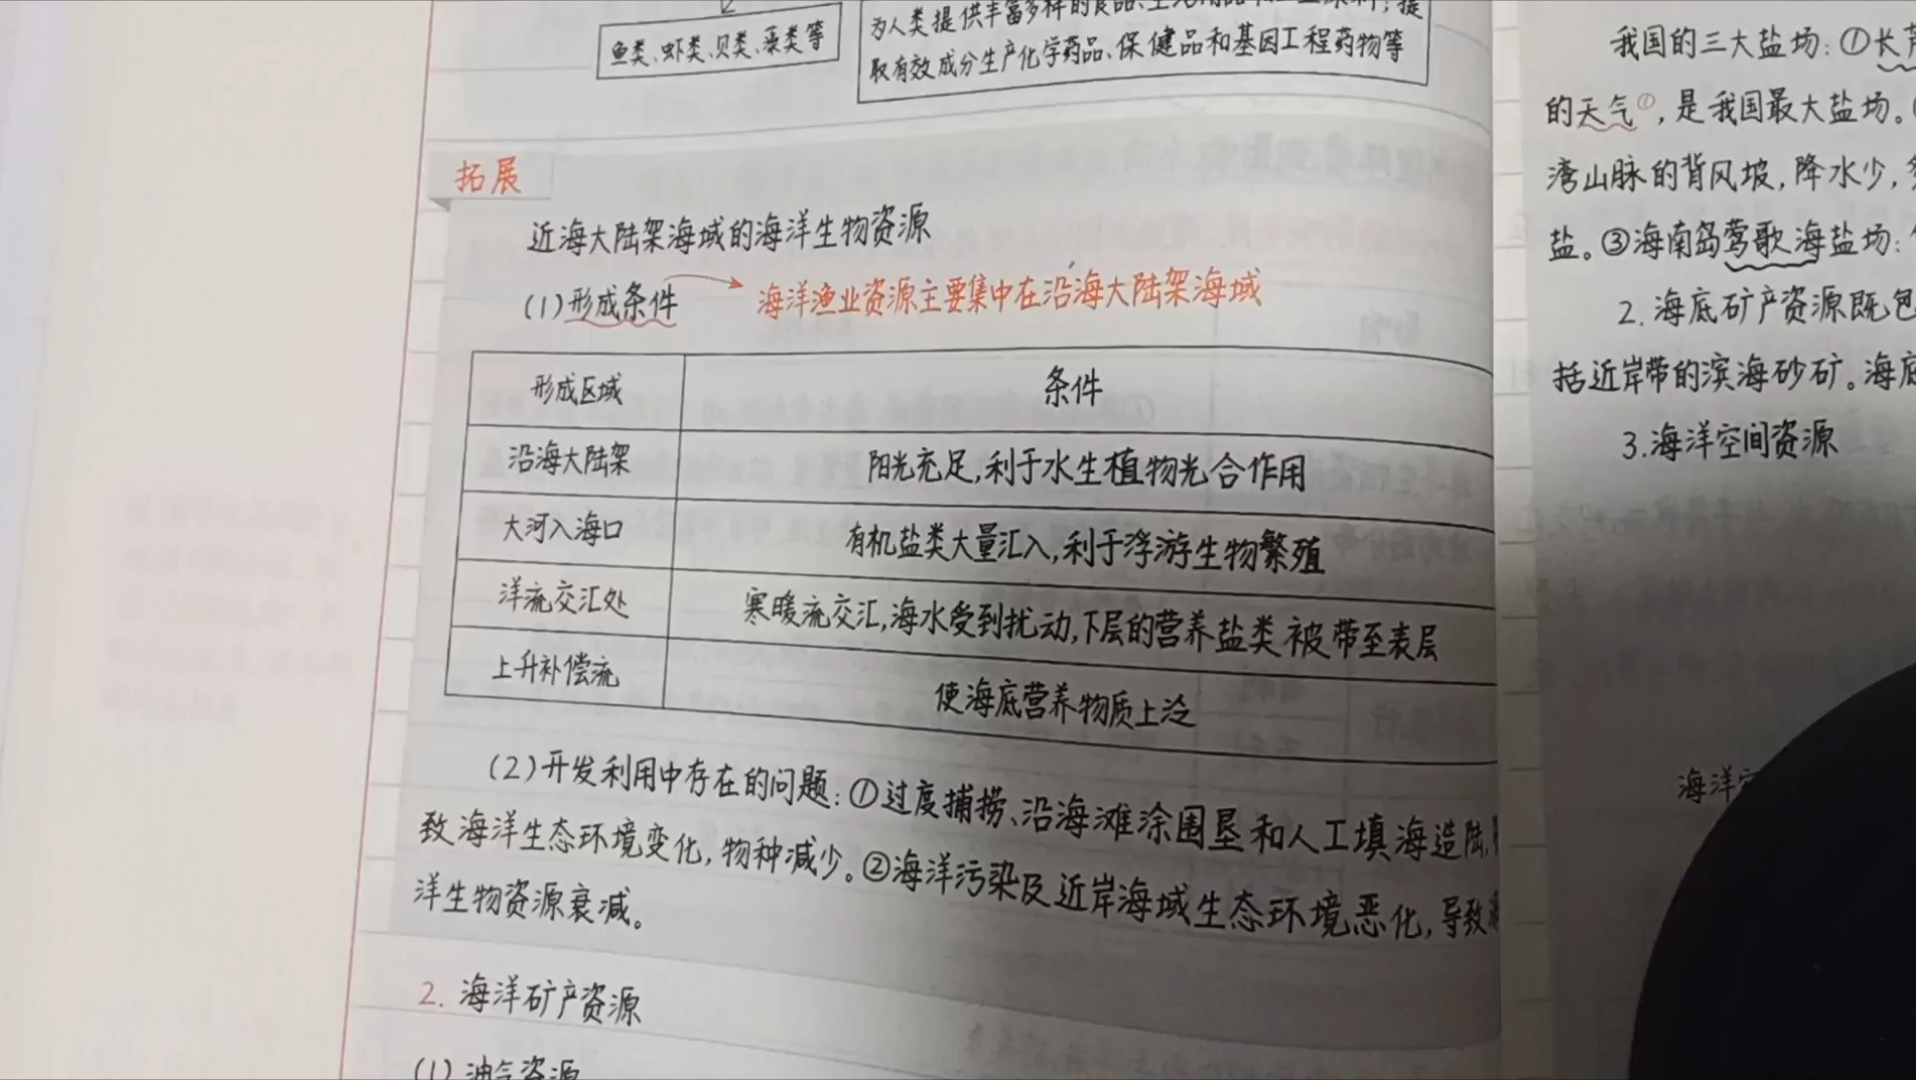 鱼类、虾类、贝类、藻类等
为人类提供丰富多样的食品、
提
取有效成分生产化学药品、保健品和基因工程药物等
拓展
近海大陆架海域的海洋生物资源
(1)形成条件
海洋渔业资源主要集中在沿海大陆架海域
形成区域 条件
沿海大陆架 阳光充足,利于水生植物光合作用
大河入海口 有机盐类大量汇入,利于浮游生物繁殖
洋流交汇处 寒暖流交汇,海水受到扰动,下层的营养盐类被带至表层
上升补偿流 使海底营养物质上泛
(2)开发利用中存在的问题:①过度捕捞、沿海滩涂围垦和人工填海造陆,
致海洋生态环境变化,物种减少。②海洋污染及近岸海域生态环境恶化,导致
洋生物资源衰减。
2. 海洋矿产资源
(1)油气资源
我国的三大盐场:①长芦
的天气①,是我国最大盐场。
湾山脉的背风坡,降水少,
盐。③海南岛莺歌海盐场:
2. 海底矿产资源既包
括近岸带的滨海砂矿。海底
3.海洋空间资源
海洋空